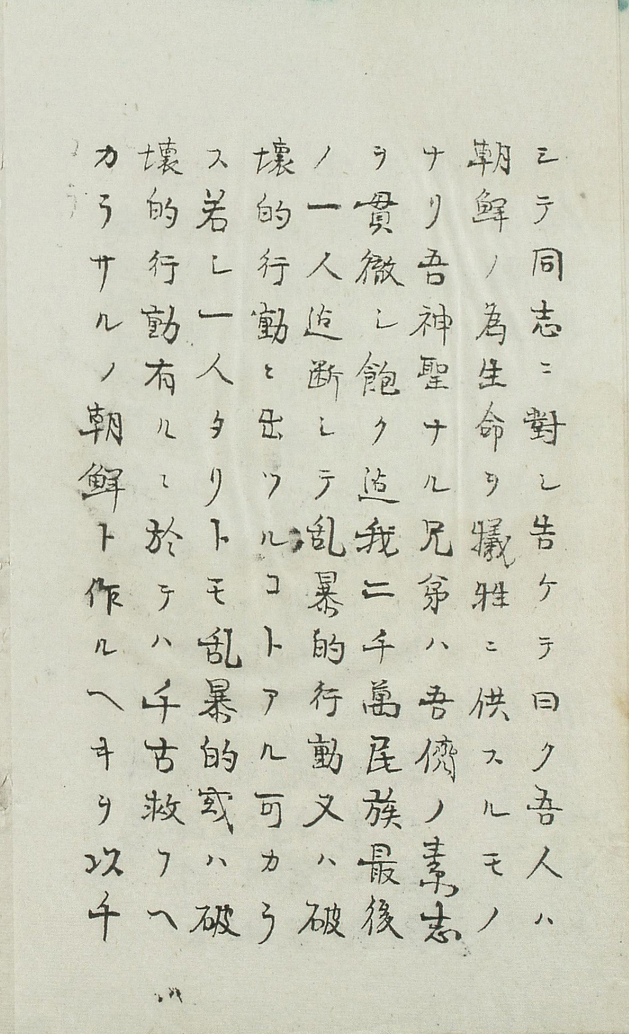 シテ同志ニ對シ告ケテ曰ク吾人ハ
朝鮮ノ為生命ヲ犠牲ニ供スルモノ
ナリ吾神聖ナル兄弟ハ吾儕ノ素志
ヲ貫徹シ飽ク迠我二千萬民族最後
ノ一人迠断シテ乱暴的行動又ハ破
壊的行動ニ出ツルコトアル可カラ
ス若シ一人タリトモ乱暴的或ハ破
壊的行動有ルニ於テハ千古救フヘ
カラサルノ朝鮮ト作ルヘキヲ以千